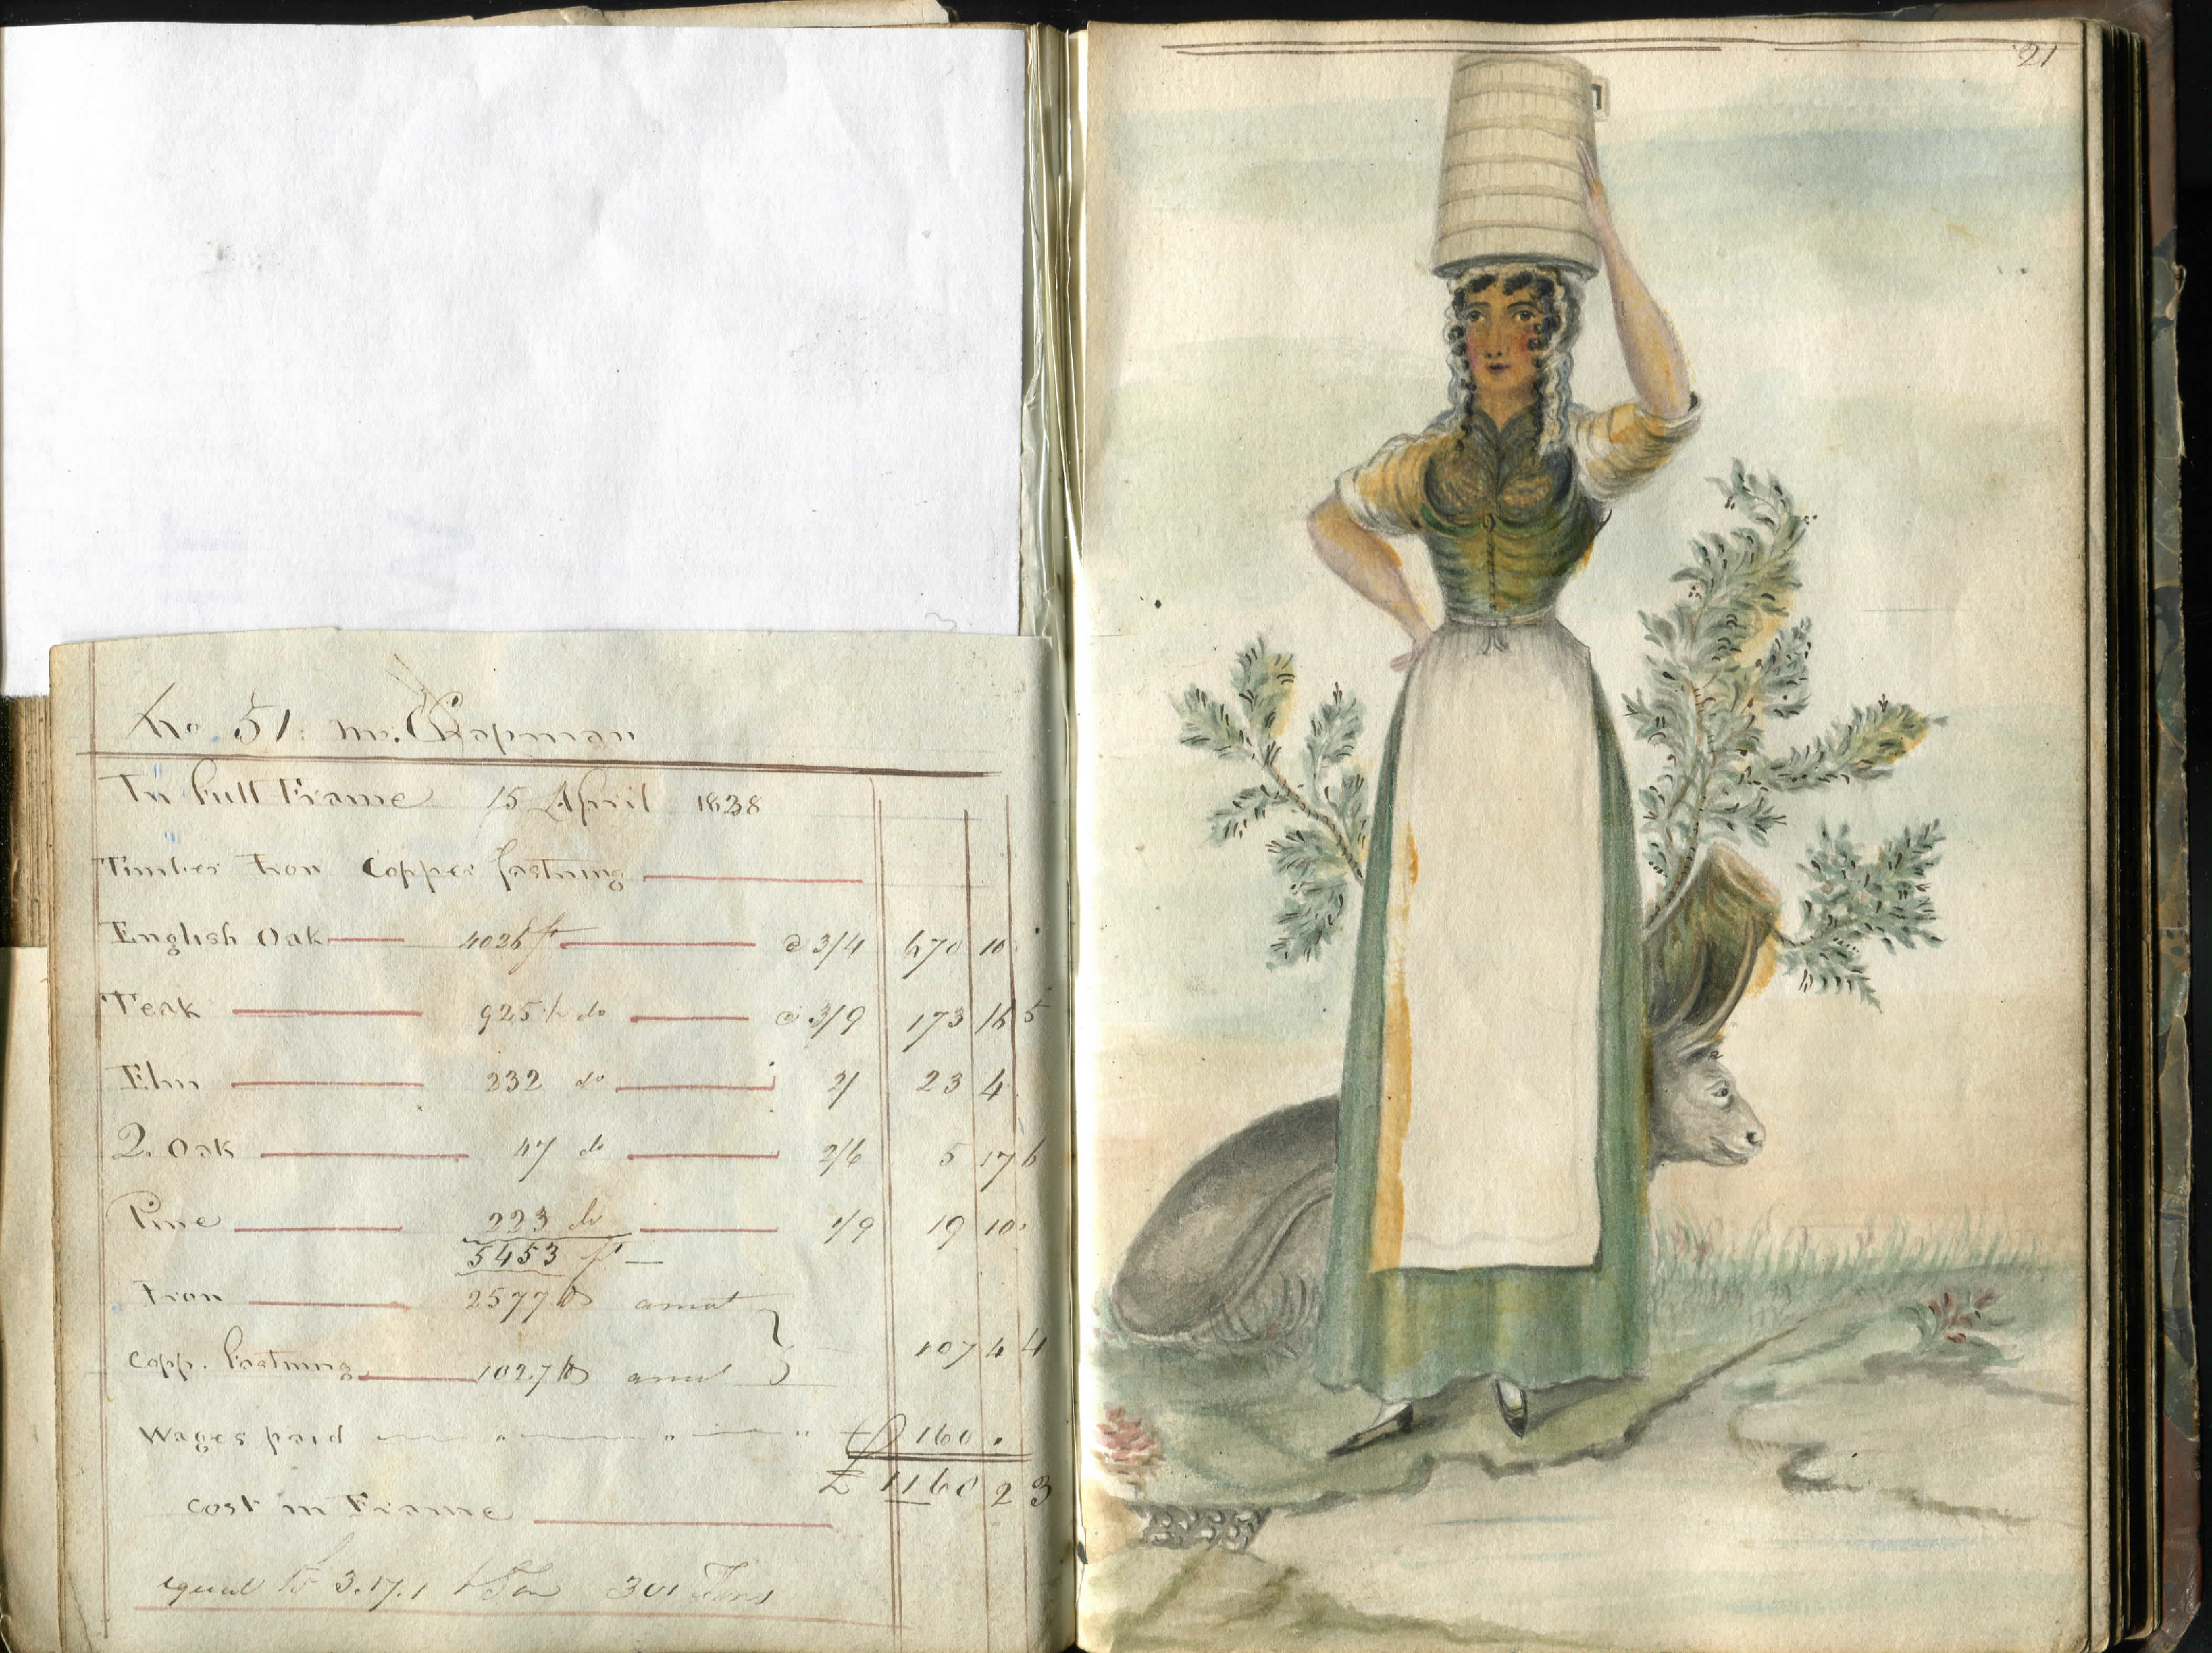 21
No 51: Mr. Chapman
In full Frame 15 April 1838
Timber Iron Copper fastning
English Oak 4026 ft @ 3/4 670 10 .
Teak 925 do @ 3/9 173 16 5
Elm 232 do 2/ 23 4
Q. Oak 47 do 2/6 5 17 6
Pine 223 do 1/9 19 10 .
5453 ft
Iron 2577 lbs amot
107 4 4
Copp. Fastning 1027 lbs amot
Wages paid 160 .
£ 1160 2 3
Cost in Frame
equal to 3.17.1 p Ton 301 Tons